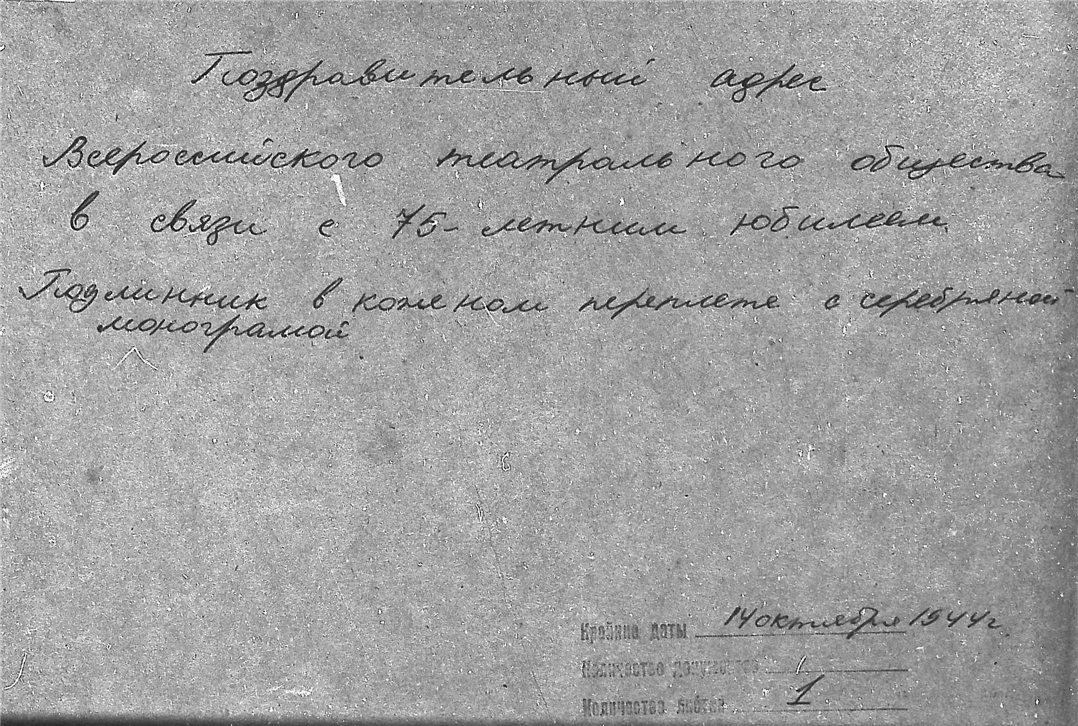 Поздравительный адрес
Всероссийского театрального общества
в связи с 75-летним юбилеем.
Подлинник в коженом переплете с серебряной
монограмой
Крайние даты 14 октября 1944 г.
Количество документов 1
Количество листов 1